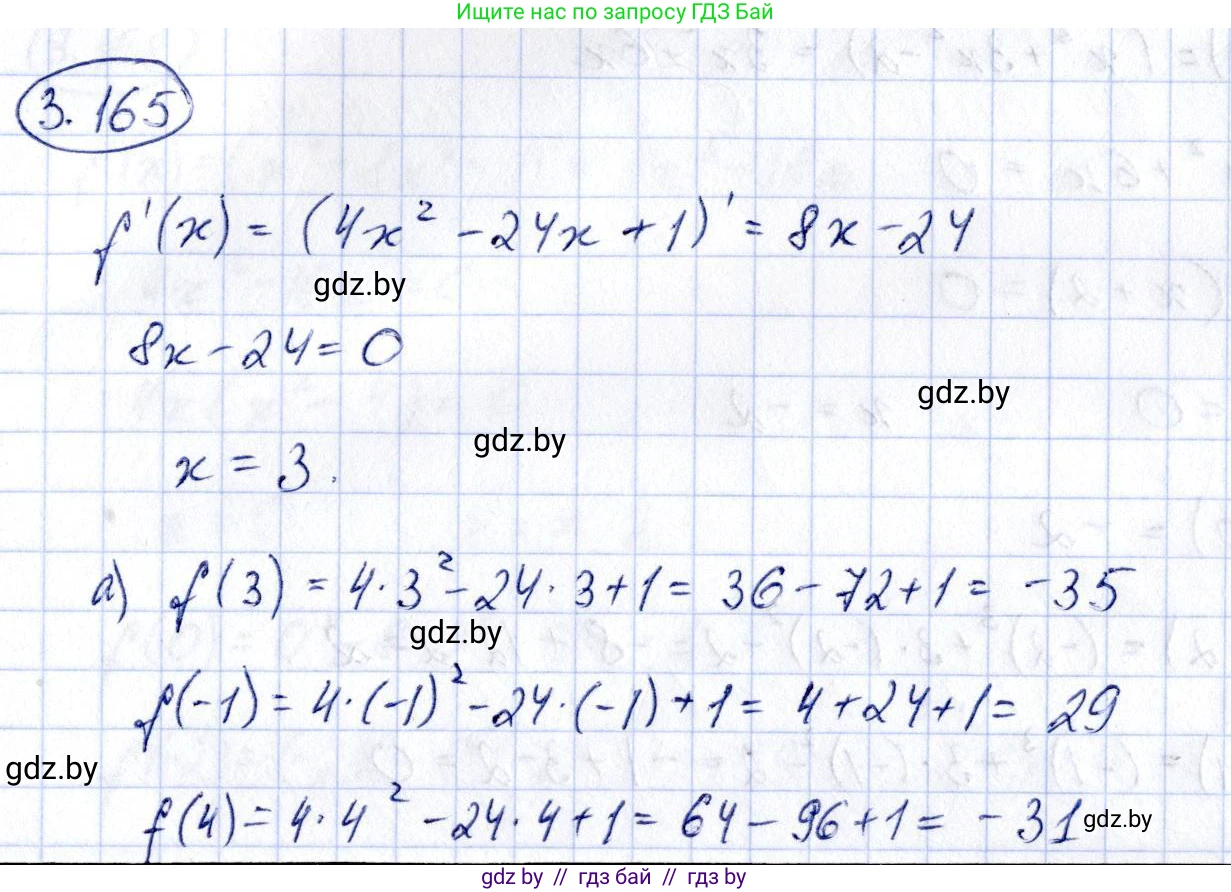 Ищите нас по запросу ГДЗ Бай
3.165
f'(x) = (4x² - 24x + 1)' = 8x - 24
gdz.by
8x - 24 = 0
gdz.by
x = 3.
gdz.by
а) f(3) = 4·3² - 24·3 + 1 = 36 - 72 + 1 = -35
gdz.by
f(-1) = 4·(-1)² - 24·(-1) + 1 = 4 + 24 + 1 = 29
gdz.by
f(4) = 4·4² - 24·4 + 1 = 64 - 96 + 1 = -31
gdz.by
gdz.by // гдз бай // гдз by